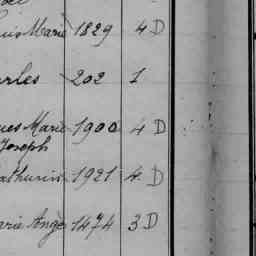 uis Marie 1829 4 D
arles 202 1
ues Marie 1900 4 D
Joseph
athurin 1921 4 D
arie Ange 1474 3 D